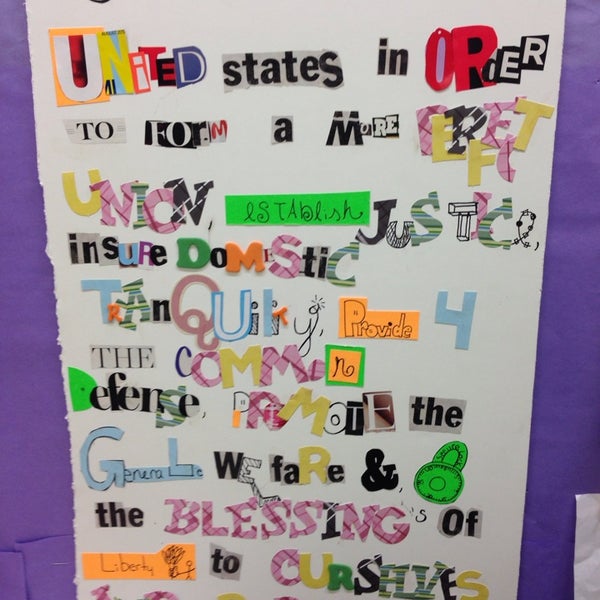 UNiTED states in ORdER
TO FORM a MoRE PERFECT
UNION, ESTABlish JuSTICE,
inSuRe DOMEStiC
TRAnQUility, Provide 4
THE COMMOn
Defense, PROMOTE the
GeneraL WELfaRe &,
the BLESSING's Of
Liberty to OURSELVES